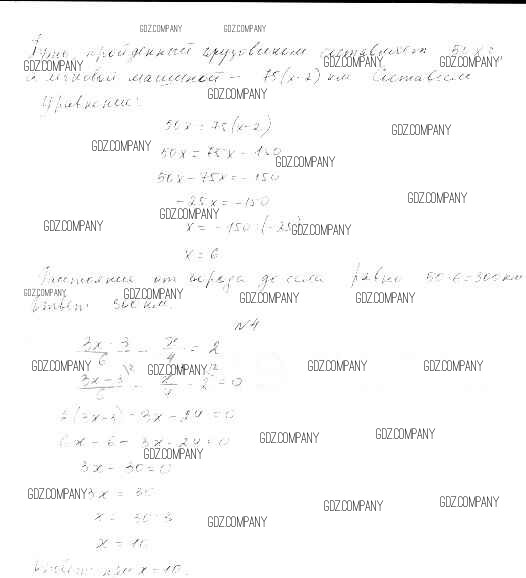 GDZ.COMPANY GDZ.COMPANY
Путь пройденный грузовиком составляет 50x,
GDZ.COMPANY GDZ.COMPANY GDZ.COMPANY
а легковой машиной - 75(x-2) км Составим
GDZ.COMPANY
уравнение:
50x = 75(x-2)
GDZ.COMPANY
GDZ.COMPANY
50x = 75x - 150
GDZ.COMPANY
50x - 75x = -150
-25x = -150
GDZ.COMPANY
GDZ.COMPANY
x = -150:(-25)
GDZ.COMPANY GDZ.COMPANY
x = 6
Расстояние от города до села равно 50·6=300 км
GDZ.COMPANY GDZ.COMPANY GDZ.COMPANY GDZ.COMPANY
Ответ 300 км.
N4
3x-3/6 - x/4 = 2
GDZ.COMPANY GDZ.COMPANY GDZ.COMPANY GDZ.COMPANY
3x-3/6 - x/4 - 2 = 0
2(3x-3) - 3x - 24 = 0
6x - 6 - 3x - 24 = 0
GDZ.COMPANY GDZ.COMPANY
GDZ.COMPANY
3x - 30 = 0
GDZ.COMPANY
3x = 30
GDZ.COMPANY GDZ.COMPANY
x = 30:3
GDZ.COMPANY
x = 10
Ответ при x = 10.